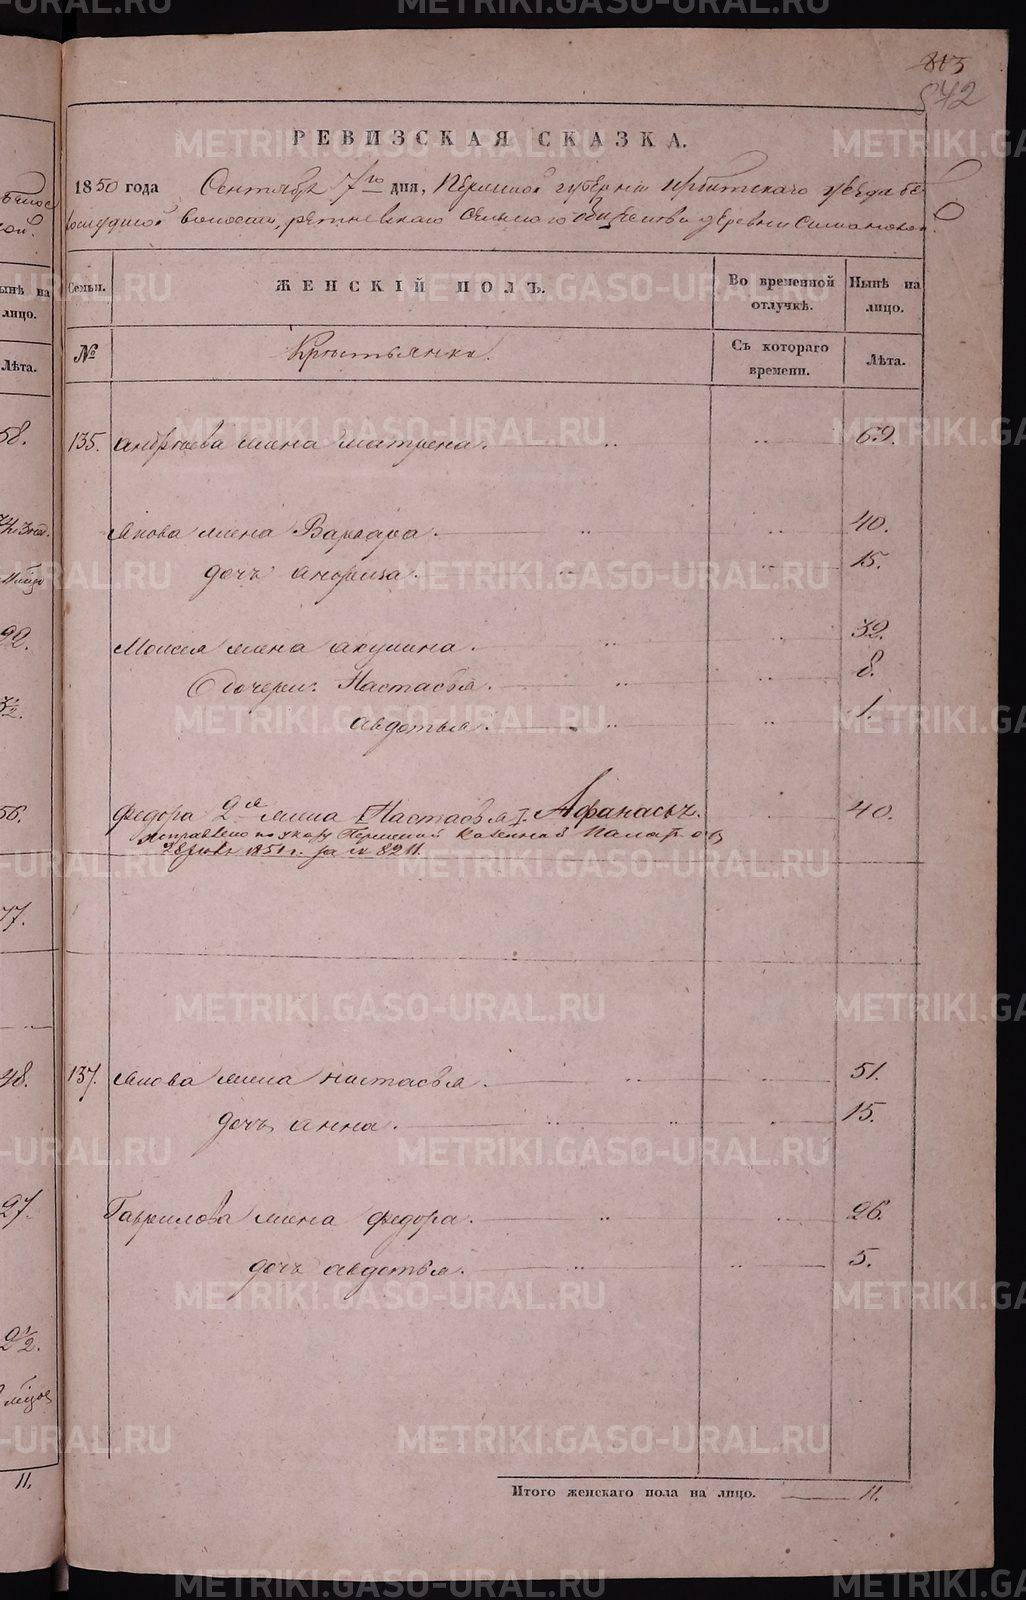 813
572
РЕВИЗСКАЯ СКАЗКА.
1850 года Сентября 7го дня, Пермской губернии ирбитскаго уезда бе
лослудской волости, ретневскаго Сельскаго Общества деревни Симановой.
Семьи.
ЖЕНСКІЙ ПОЛЪ.
Во временной отлучкѣ.
Нынѣ на лицо.
№
Крестьянки.
Съ котораго времени.
Лѣта.
135. андреева жена матрена. 69.
Якова жена Варвара. 40.
дочь анфиза. 15.
Моисея жена акулина. 32.
дочери: Настасья. 8.
авдотья. 1.
Федора 2я жена Настасья Афанасьъ. 40.
Исправлено по указу Пермской Казенной Палаты от
28 1851 г. за № 8211.
137. Якова жена настасья. 51.
дочь анна. 15.
Гаврилова жена федора. 26.
дочь авдотья. 5.
Итого женскаго пола на лицо. 11.
ынѣ на
лицо.
Лѣта.
58.
22.
56.
77.
48.
27.
2½.
11.
METRIKI.GASO-URAL.RU